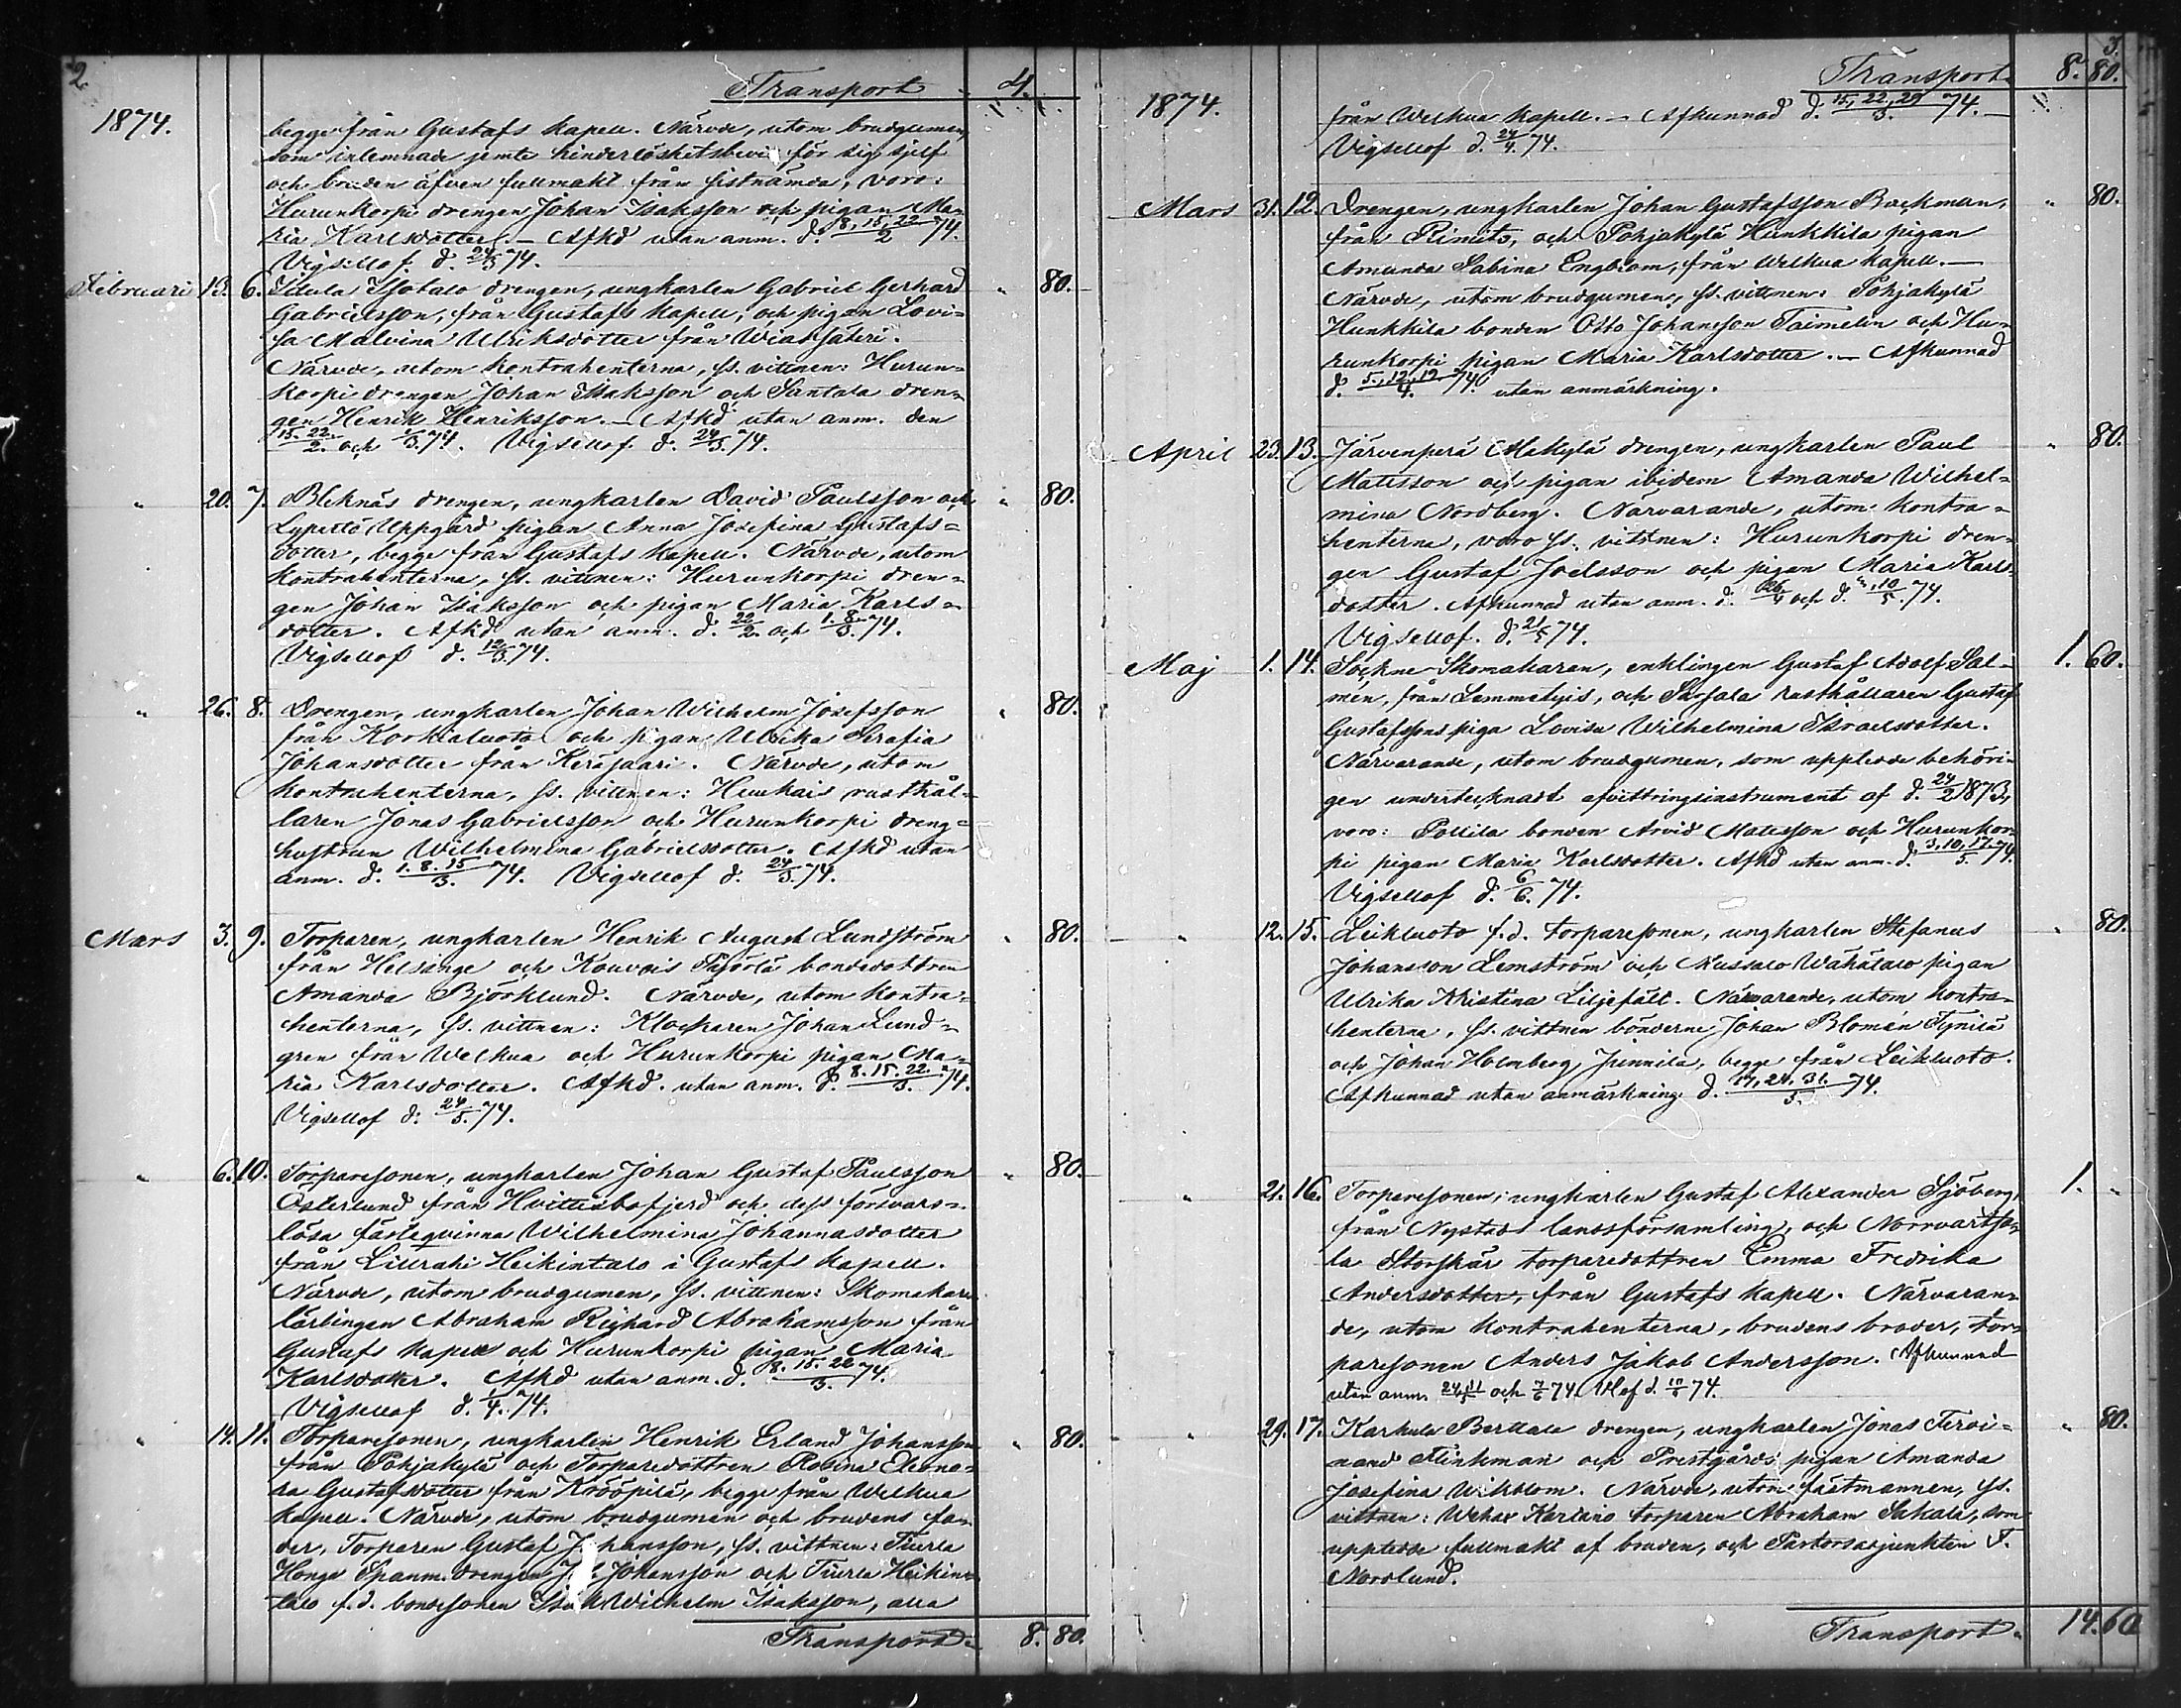 2.
Transport 4. "
1874.
begge från Gustafs Kapell. Närvde, utom brudgumen,
som inlemnade jemte hinderlöshetsbevis för sig sjelf
och bruden äfven fullmakt från sistnämda, voro:
Hurunkorpi drengen Johan Isaksson och pigan Ma-
ria Karlsdotter. — Afkd utan anm. d. 8, 15, 22/2 74.
Vigsellof d. 24/3 74.
Februari 13. 6. Isotalo drengen, ungkarlen Gabriel Gerhard " 80.
Gabrielsson, från Gustafs Kapell, och pigan Lovi-
sa Malvina Ulriksdotter från Wiais säteri.
Närvde, utom kontrahenterna, ss. vittnen: Hurun-
korpi drengen Johan Isaksson och Santala dren-
gen Henrik Henriksson. — Afkd utan anm. den
15. 22./2. och 1/3. 74. Vigsellof d. 24/3. 74.
" 20. 7. Bleknäs drengen, ungkarlen David Paulsson och " 80.
Lypertö Uppgård pigan Anna Josefina Gustafs-
dotter, begge från Gustafs Kapell. Närvde, utom
kontrahenterna, ss. vittnen: Hurunkorpi dren-
gen Johan Isaksson och pigan Maria Karls-
dotter. Afkd utan anm. d. 22/2. och 1. 8./3. 74.
Vigsellof d. 12/3 74.
" 26. 8. Drengen, ungkarlen Johan Wilhelm Josefsson " 80.
från Korkialuoto och pigan Ulrika Serafia
Johansdotter från Keräsaari. Närvde, utom
kontrahenterna, ss. vittnen: rusthål-
laren Jonas Gabrielsson och Hurunkorpi dreng-
hustrun Wilhelmina Gabrielsdotter. Afkd utan
anm. d. 1. 8. 15/3. 74. Vigsellof d. 24/3. 74.
Mars 3. 9. Torparen, ungkarlen Henrik August Lundström " 80.
från Helsinge och Kouvois bondedottren
Amanda Björklund. Närvde, utom kontra-
henterna, ss. vittnen: Klockaren Johan Lund-
gren från Welkua och Hurunkorpi pigan Ma-
ria Karlsdotter. Afkd. utan anm. d. 8. 15. 22./3. 74.
Vigsellof d. 24/5. 74.
" 6. 10. Torparesonen, ungkarlen Johan Gustaf Paulsson " 80.
Österlund från Hvittisbofjerd och dess försvars-
lösa fästeqvinna Wilhelmina Johannasdotter
från Lillrahi Heikintalo i Gustafs Kapell.
Närvde, utom brudgumen, ss. vittnen: Skomakare
lärlingen Abraham Rickard Abrahamsson från
Gustafs Kapell och Hurunkorpi pigan Maria
Karlsdotter. Afkd utan anm. d. 8. 15. 22/3. 74.
Vigsellof d. 1/4. 74.
" 14. 11. Torparesonen, ungkarlen Henrik Erland Johansson " 80.
från Pohjakylä och Torparedottren Rosina Eleono-
ra Gustafsdotter från Krööpilä, begge från Welkua
Kapell. Närvde, utom brudgumen och brudens fa-
der, Torparen Gustaf Johansson, ss. vittnen: Tiurla
Honga Spanm. drengen Johansson och Tiurla Heikin-
talo f.d. bondesonen Isak Wilhelm Isaksson, alla
Transport 8. 80.
3.
Transport 8. 80.
1874.
från Welkua Kapell. — Afkunnad d. 15, 22, 29/3. 74. —
Vigsellof d. 24/4. 74.
Mars 31. 12. Drengen, ungkarlen Johan Gustafsson Backman, " 80.
från Rimito, och Pohjakylä Hunkkila pigan
Amanda Sabina Engblom, från Welkua Kapell. —
Närvde, utom brudgumen, ss. vittnen: Pohjakylä
Hunkkila bonden Otto Johansson Taimelin och Hu-
runkorpi pigan Maria Karlsdotter. — Afkunnad
d. 5, 12, 19/4. 74. utan anmärkning.
April 23. 13. Järvenperä Mäkylä drengen, ungkarlen Paul " 80.
Matsson och pigan ibidem Amanda Wilhel-
mina Nordberg. Närvarande, utom kontra-
henterna, voro ss. vittnen: Hurunkorpi dren-
gen Gustaf Joelsson och pigan Maria Karls-
dotter. Afkunnad utan anm. d. 26/4 och d. 3, 10/5. 74.
Vigsellof. d. 21/5 74.
Maj 1. 14. Sockne-Skomakaren, enklingen Gustaf Adolf Sal- 1. 60.
mén, från Lemmelyis, och Sarsala rusthållaren Gustaf
Gustafssons piga Lovisa Wilhelmina Israelsdotter.
Närvarande, utom brudgumen, som uppledde behöri-
gen undertecknadt afvittringsinstrument af d. 24/2 1873,
voro: Pollila bonden Arvid Matsson och Hurunkor-
pi pigan Maria Karlsdotter. Afkd utan anm. d. 3, 10, 17/5. 74.
Vigsellof d. 6/6. 74.
" 12. 15. Leikluoto f.d. torparesonen, ungkarlen Stefanus " 80.
Johansson Lemström och Wähätalo pigan
Ulrika Kristina Liljefält. Närvarande, utom kontra-
henterna, ss. vittnen bönderne Johan Blomén Tynilä
och Johan Holmberg Junnila, begge från Leikluoto.
Afkunnad utan anmärkning d. 17, 24, 31./5. 74.
" 21. 16. Torparesonen, ungkarlen Gustaf Alexander Sjöberg, 1. "
från Nystads landsförsamling, och Norrvartsa-
la Storskär torparedottren Emma Fredrika
Andersdotter, från Gustafs Kapell. Närvaran-
de, utom kontrahenterna, brudens broder, tor-
paresonen Anders Jakob Andersson. Afkunnad
utan anm. 24, 31/5 och 7/6 74. Vlof d. 10/6 74.
" 29. 17. Karkula Berttala drengen, ungkarlen Jonas Ferdi- " 80.
nand Flinkman och Prestgårds pigan Amanda
Josefina Wiklöm. Närvde, utom fästmannen, ss.
vittnen: Kartano torparen Abraham Sakala, som
uppledde fullmakt af bruden, och Pastorsadjunkten F.
Nordlund.
Transport 14. 60